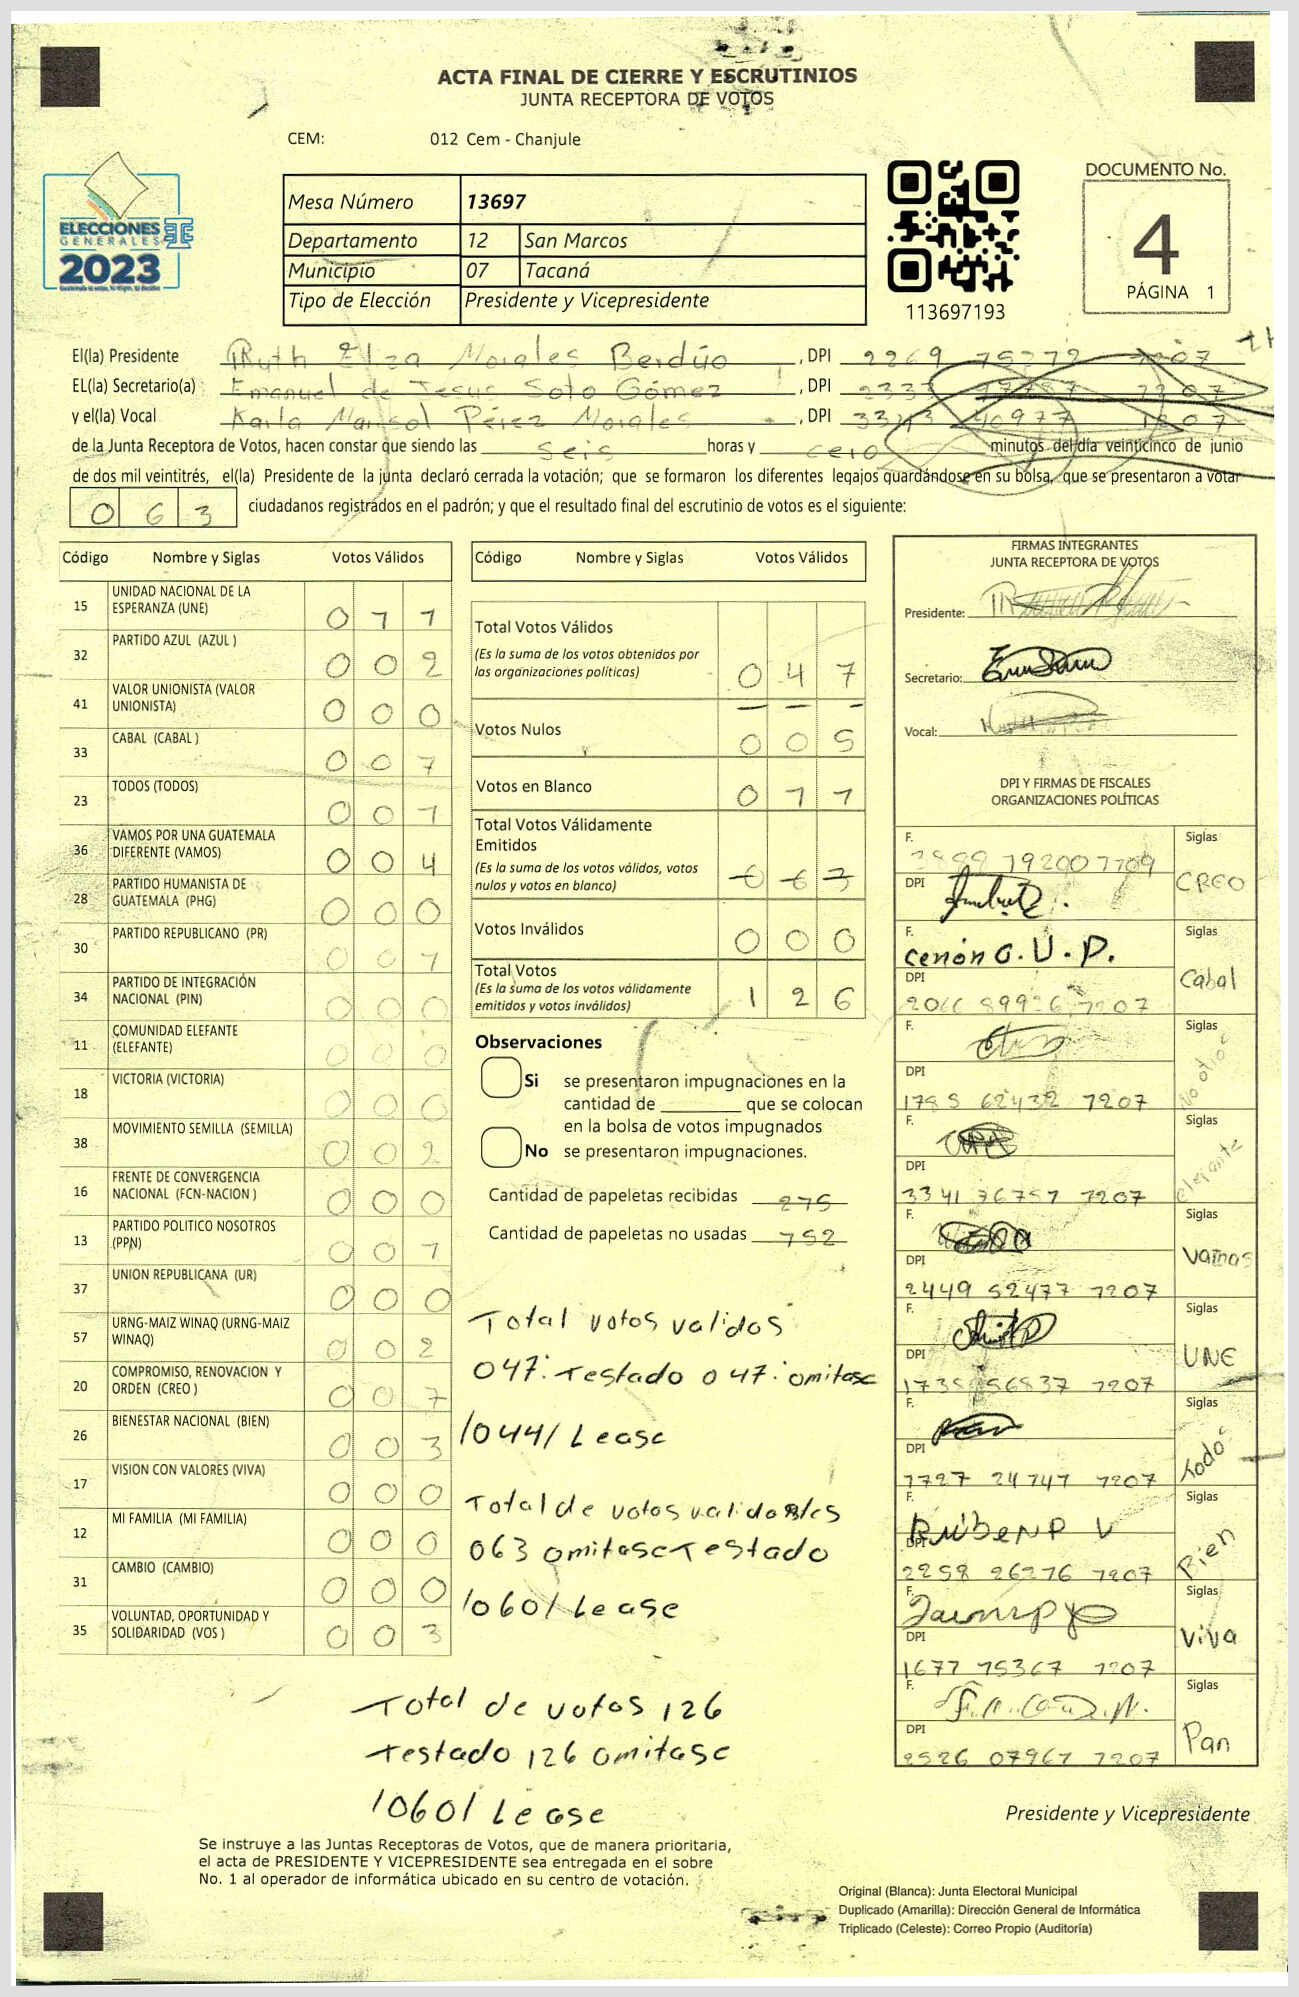 ACTA FINAL DE CIERRE Y ESCRUTINIOS
JUNTA RECEPTORA DE VOTOS
CEM: 012 Cem - Chanjule
ELECCIONES
GENERALES
2023
Mesa Número 13697
Departamento 12 San Marcos
Municipio 07 Tacaná
Tipo de Elección Presidente y Vicepresidente
113697193
DOCUMENTO No.
4
PÁGINA 1
El(la) Presidente Ruth Elza Morales Berdúo , DPI 2269
EL(la) Secretario(a) Emanuel de Jesus Soto Gómez , DPI 2337
y el(la) Vocal Karla Marisol Pérez Morales , DPI
de la Junta Receptora de Votos, hacen constar que siendo las seis horas y cero minutos del día veinticinco de junio
de dos mil veintitrés, el(la) Presidente de la junta declaró cerrada la votación; que se formaron los diferentes legajos guardándose en su bolsa, que se presentaron a votar
063 ciudadanos registrados en el padrón; y que el resultado final del escrutinio de votos es el siguiente:
Código Nombre y Siglas Votos Válidos
15 UNIDAD NACIONAL DE LA ESPERANZA (UNE) 0 1 1
32 PARTIDO AZUL (AZUL ) 0 0 2
41 VALOR UNIONISTA (VALOR UNIONISTA) 0 0 0
33 CABAL (CABAL ) 0 0 7
23 TODOS (TODOS) 0 0 1
36 VAMOS POR UNA GUATEMALA DIFERENTE (VAMOS) 0 0 4
28 PARTIDO HUMANISTA DE GUATEMALA (PHG) 0 0 0
30 PARTIDO REPUBLICANO (PR) 0 0 1
34 PARTIDO DE INTEGRACIÓN NACIONAL (PIN) 0 0 0
11 COMUNIDAD ELEFANTE (ELEFANTE) 0 0 0
18 VICTORIA (VICTORIA) 0 0 0
38 MOVIMIENTO SEMILLA (SEMILLA) 0 0 2
16 FRENTE DE CONVERGENCIA NACIONAL (FCN-NACION ) 0 0 0
13 PARTIDO POLITICO NOSOTROS (PPN) 0 0 1
37 UNION REPUBLICANA (UR) 0 0 0
57 URNG-MAIZ WINAQ (URNG-MAIZ WINAQ) 0 0 2
20 COMPROMISO, RENOVACION Y ORDEN (CREO ) 0 0 7
26 BIENESTAR NACIONAL (BIEN) 0 0 3
17 VISION CON VALORES (VIVA) 0 0 0
12 MI FAMILIA (MI FAMILIA) 0 0 0
31 CAMBIO (CAMBIO) 0 0 0
35 VOLUNTAD, OPORTUNIDAD Y SOLIDARIDAD (VOS ) 0 0 3
Código Nombre y Siglas Votos Válidos
Total Votos Válidos
(Es la suma de los votos obtenidos por las organizaciones políticas) 0 4 7
Votos Nulos 0 0 5
Votos en Blanco 0 1 1
Total Votos Válidamente Emitidos
(Es la suma de los votos válidos, votos nulos y votos en blanco) 0 6 3
Votos Inválidos 0 0 0
Total Votos
(Es la suma de los votos válidamente emitidos y votos inválidos) 1 2 6
Observaciones
Si se presentaron impugnaciones en la
cantidad de ________ que se colocan
en la bolsa de votos impugnados
No se presentaron impugnaciones.
Cantidad de papeletas recibidas 275
Cantidad de papeletas no usadas 152
Total votos validos
047: Testado 047: omitase
/044/ Lease
Total de votos
063 omitase Testado
/060/ Lease
Total de votos 126
Testado 126 omitase
/060/ Lease
FIRMAS INTEGRANTES
JUNTA RECEPTORA DE VOTOS
Presidente:
Secretario:
Vocal:
DPI Y FIRMAS DE FISCALES
ORGANIZACIONES POLÍTICAS
F. Siglas
DPI CREO
F. cenón O. V. P. Siglas
DPI Cabal
F. Siglas
DPI
1785 62432 1207
F. Siglas
DPI elefante
3341 76757 1207
F. Siglas
DPI Vamos
2449 52477 1207
F. Siglas
DPI UNE
F. Siglas
DPI Todos
1727 24747 1207
F. Rubén P V Siglas
DPI Bien
2258 26276 1207
F. Siglas
DPI Viva
1677 75367 1207
F. Siglas
DPI Pan
2526 07967 1207
Presidente y Vicepresidente
Se instruye a las Juntas Receptoras de Votos, que de manera prioritaria,
el acta de PRESIDENTE Y VICEPRESIDENTE sea entregada en el sobre
No. 1 al operador de informática ubicado en su centro de votación.
Original (Blanca): Junta Electoral Municipal
Duplicado (Amarilla): Dirección General de Informática
Triplicado (Celeste): Correo Propio (Auditoría)